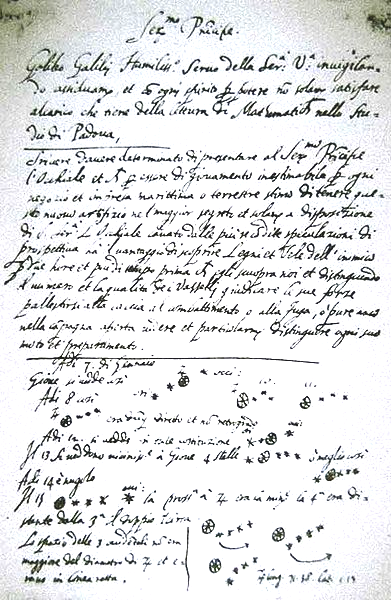 Ser.mo Principe.
Galileo Galilei Humiliss.o Servo della Ser.a V.a invigilan-
do assiduamente, et con ogni spirito per potere non solamente satisfare
alcarico che tiene della lettura di Mathematiche nello Stu-
dio di Padova,
Scrivere d'avere determinato di presentare al Ser.mo Principe
l'Occhiale et per essere di giovamento inestimabile per ogni
negozio et impresa marittima o terrestre stimo di tenere que-
sto nuovo artifizio nel maggior segreto et solamente a disposizione
di S. Ser.a L'Occhiale cavato dalle più recondite speculazioni di
prospettiva ha il vantaggio di scoprire Legni et Vele dell'inimico
per due hore et più di tempo prima ch'egli scuopra noi et distinguendo
il numero et la qualità de i Vasselli giudicare le sue forze
pallestirsi alla caccia al combattimento o alla fuga, o pure anco
nella campagna aperta vedere et particolarmente distinguere ogni suo
moto et preparamento.
Adi 7. di Gennaio
Giove si vede così
Adi 8 così
era dunque diretto et non retrogrado
Adi 12. si vedde in tale costituzione
Il 13 si veddono vicinissime a Giove 4 stelle meglio così
Adi 14 è nugolo
Il 15 la pross.a a ♃ era la min.e la 4.a era di-
stante dalla 3.a il doppio circa
Lo spazio delle 3 occidentali non era
maggiore del diametro di ♃ et e-
rano in linea retta.